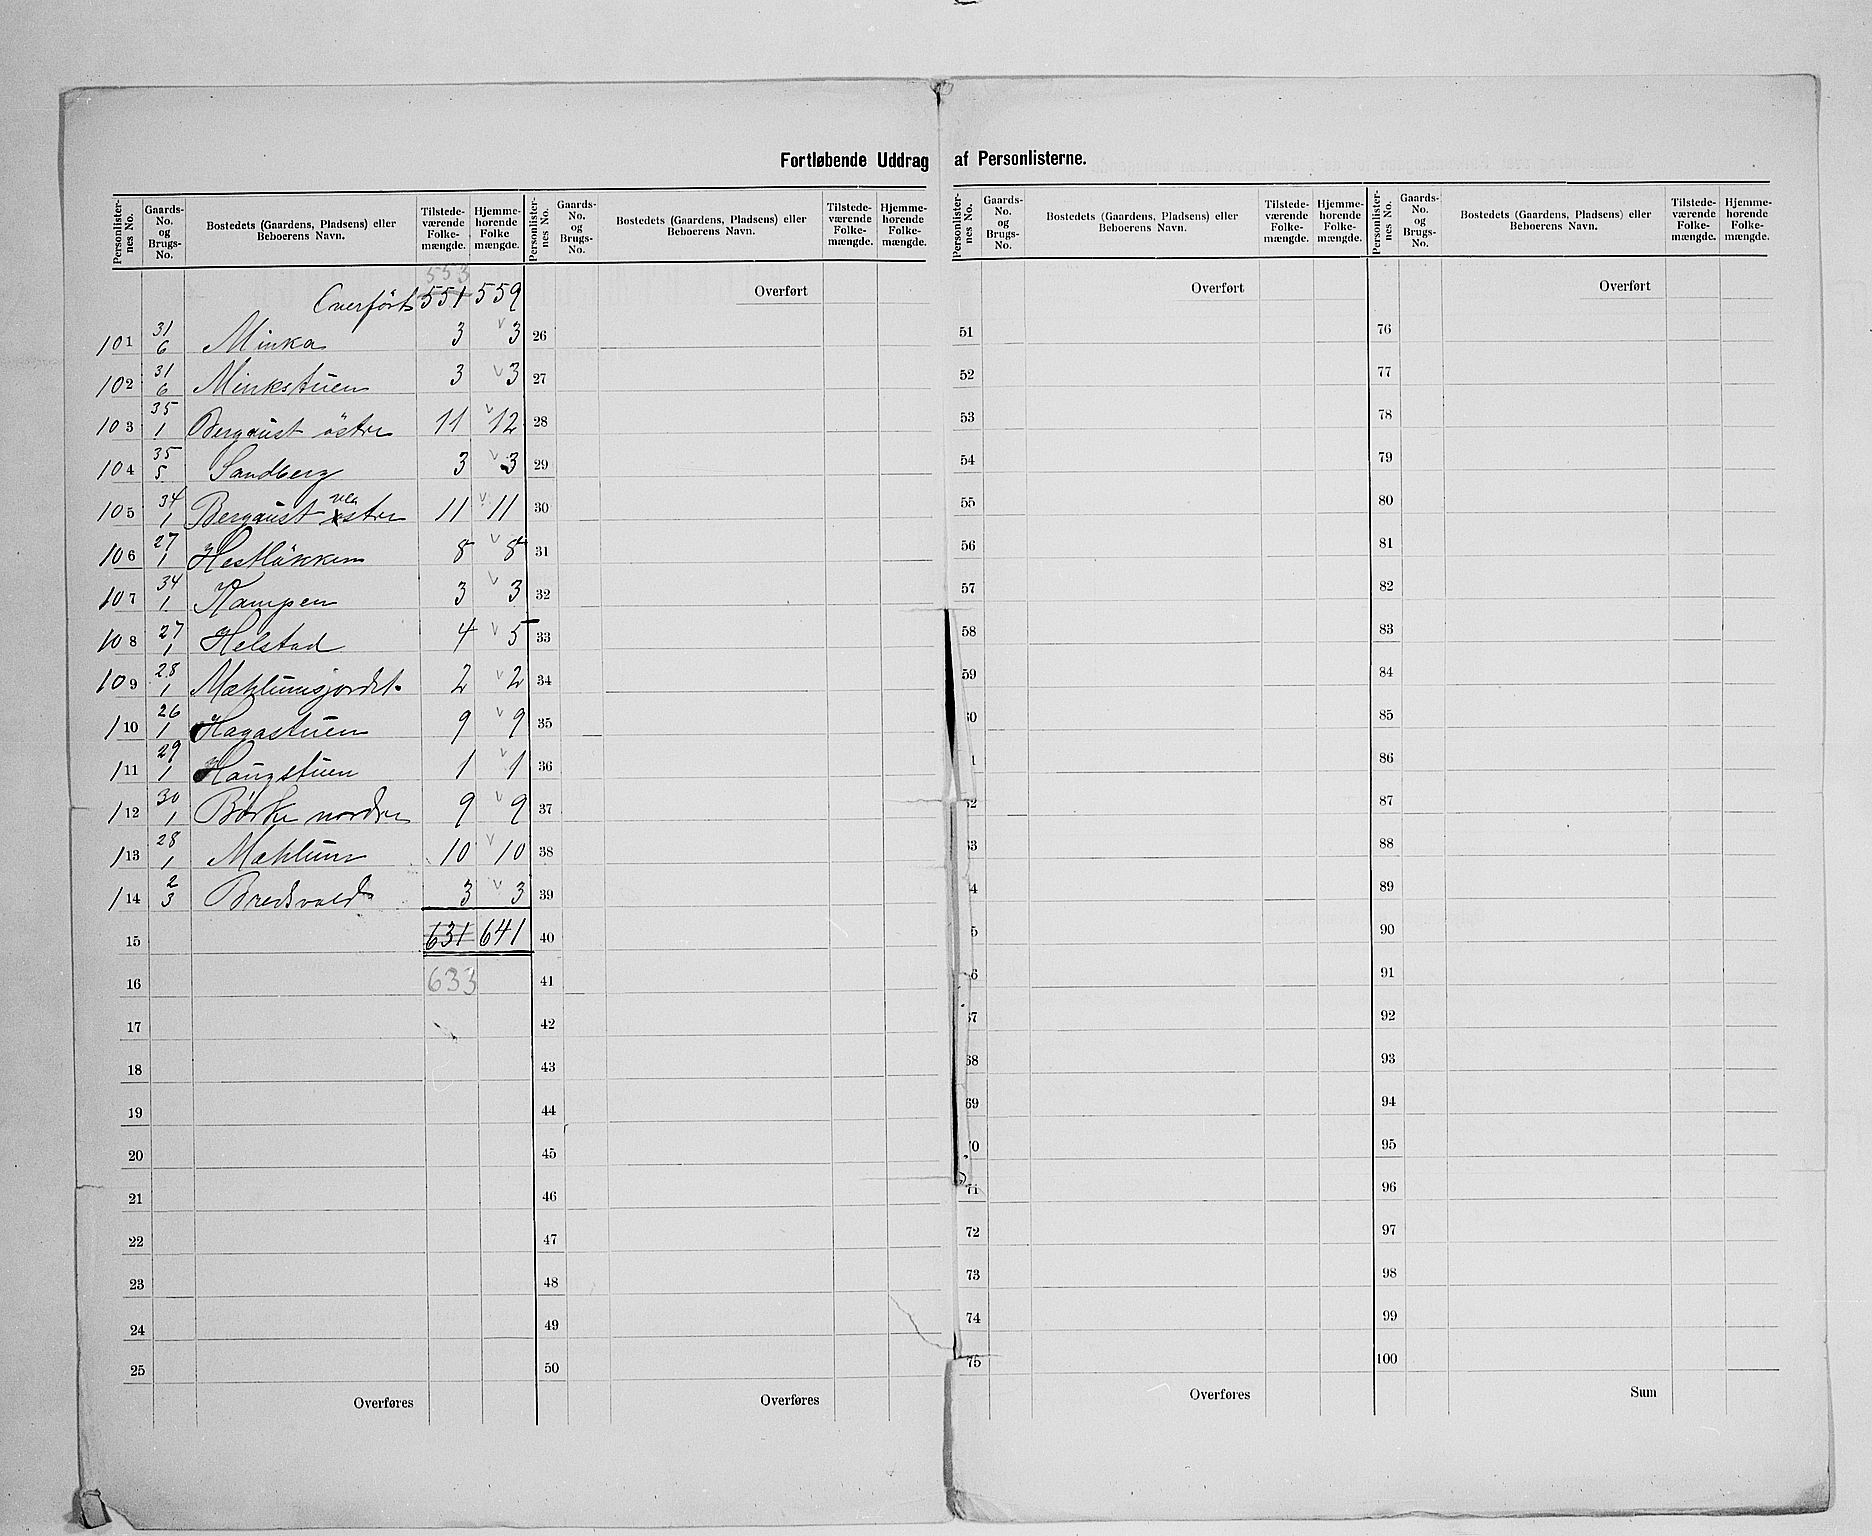 Fortløbende Uddrag af Personlisterne.
Personlister-nes No. | Gaards-No. og Brugs-No. | Bostedets (Gaardens, Pladsens) eller Beboerens Navn. | Tilstede-værende Folke-mængde. | Hjemme-hørende Folke mængde.
553
Overført 551 559
101 31/6 Minka 3 3
102 31/6 Minkstuen 3 3
103 35/1 Bergaust östre 11 12
104 35/5 Sandberg 3 3
105 34/1 Bergaust vestre 11 11
106 27/1 Hestløkken 8 8
107 34/1 Kampen 3 3
108 27/1 Helstad 4 5
109 28/1 Mæhlumsjordet 2 2
110 26/1 Hagastuen 9 9
111 29/1 Haugstuen 1 1
112 30/1 Börke nordre 9 9
113 28/1 Mæhlum 10 10
114 2/3 Bredsvold 3 3
15 631 641
16 633
17
18
19
20
21
22
23
24
25
Overføres
Personlister-nes No. | Gaards-No. og Brugs-No. | Bostedets (Gaardens, Pladsens) eller Beboerens Navn. | Tilstede-værende Folke-mængde. | Hjemme-hørende Folke-mængde.
Overført
26
27
28
29
30
31
32
33
34
35
36
37
38
39
40
41
42
43
44
45
46
47
48
49
50
Overføres
Personlister-nes No. | Gaards-No. og Brugs-No. | Bostedets (Gaardens, Pladsens) eller Beboerens Navn. | Tilstede-værende Folke-mængde. | Hjemme-hørende Folke-mængde.
Overført
51
52
53
54
55
56
57
58
59
60
1
62
63
4
5
6
67
68
69
70
71
72
73
74
75
Overføres
Personlister-nes No. | Gaards-No. og Brugs-No. | Bostedets (Gaardens, Pladsens) eller Beboerens Navn. | Tilstede-værende Folke-mængde. | Hjemme-hørende Folke-mængde.
Overført
76
77
78
79
80
81
82
83
84
85
86
87
88
89
90
91
92
93
94
95
96
97
98
99
100
Sum